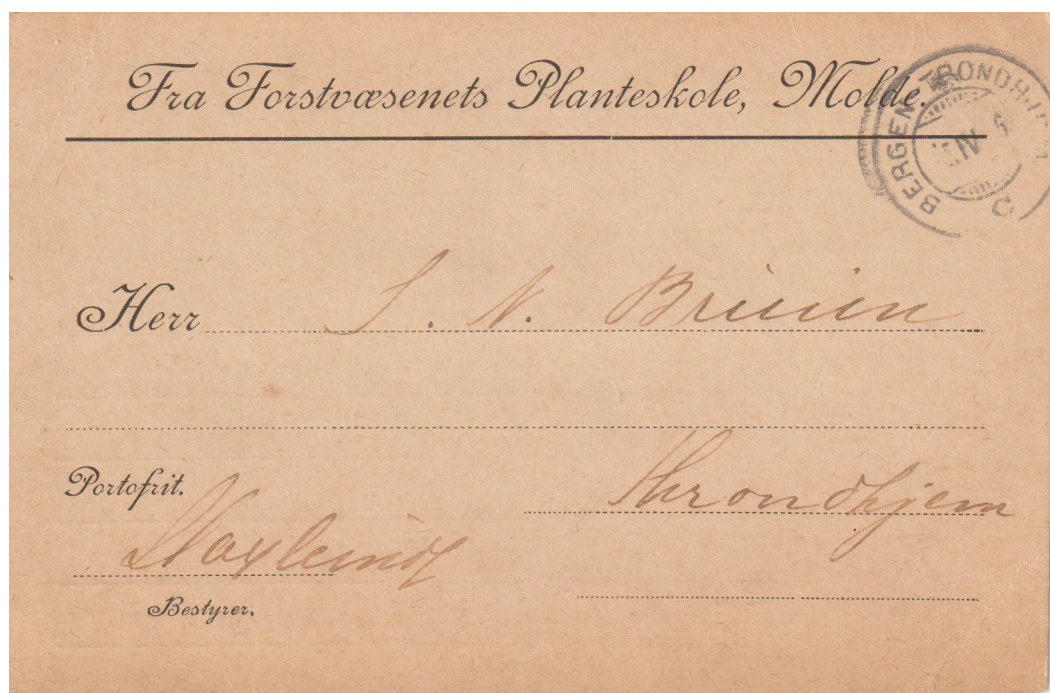 Fra Forstvæsenets Planteskole, Molde.
BERGEN TRONDHJEM
IV
2
Herr S. N. Bruun
Portofrit.
Throndhjem
Bestyrer.